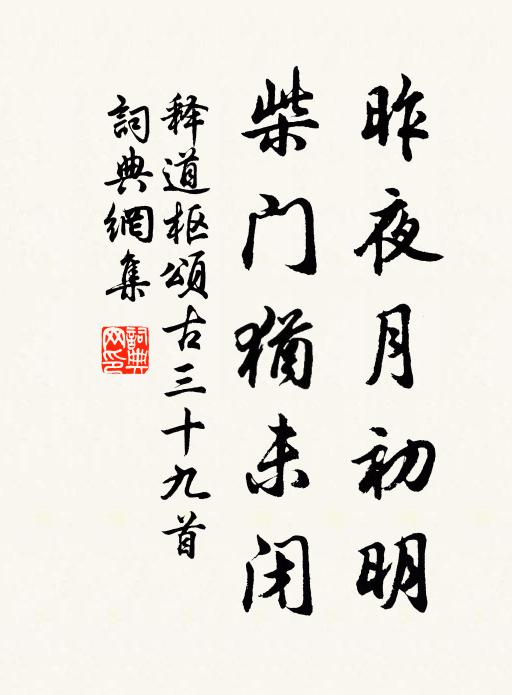 昨夜月初明
柴门犹未闭
释道枢颂古三十九首
詞典網集
詞典網印